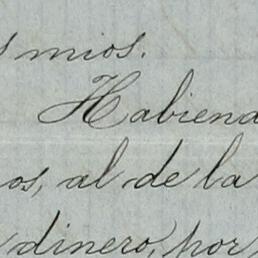 s mios.
Habiend
os, al de la
dinero, por